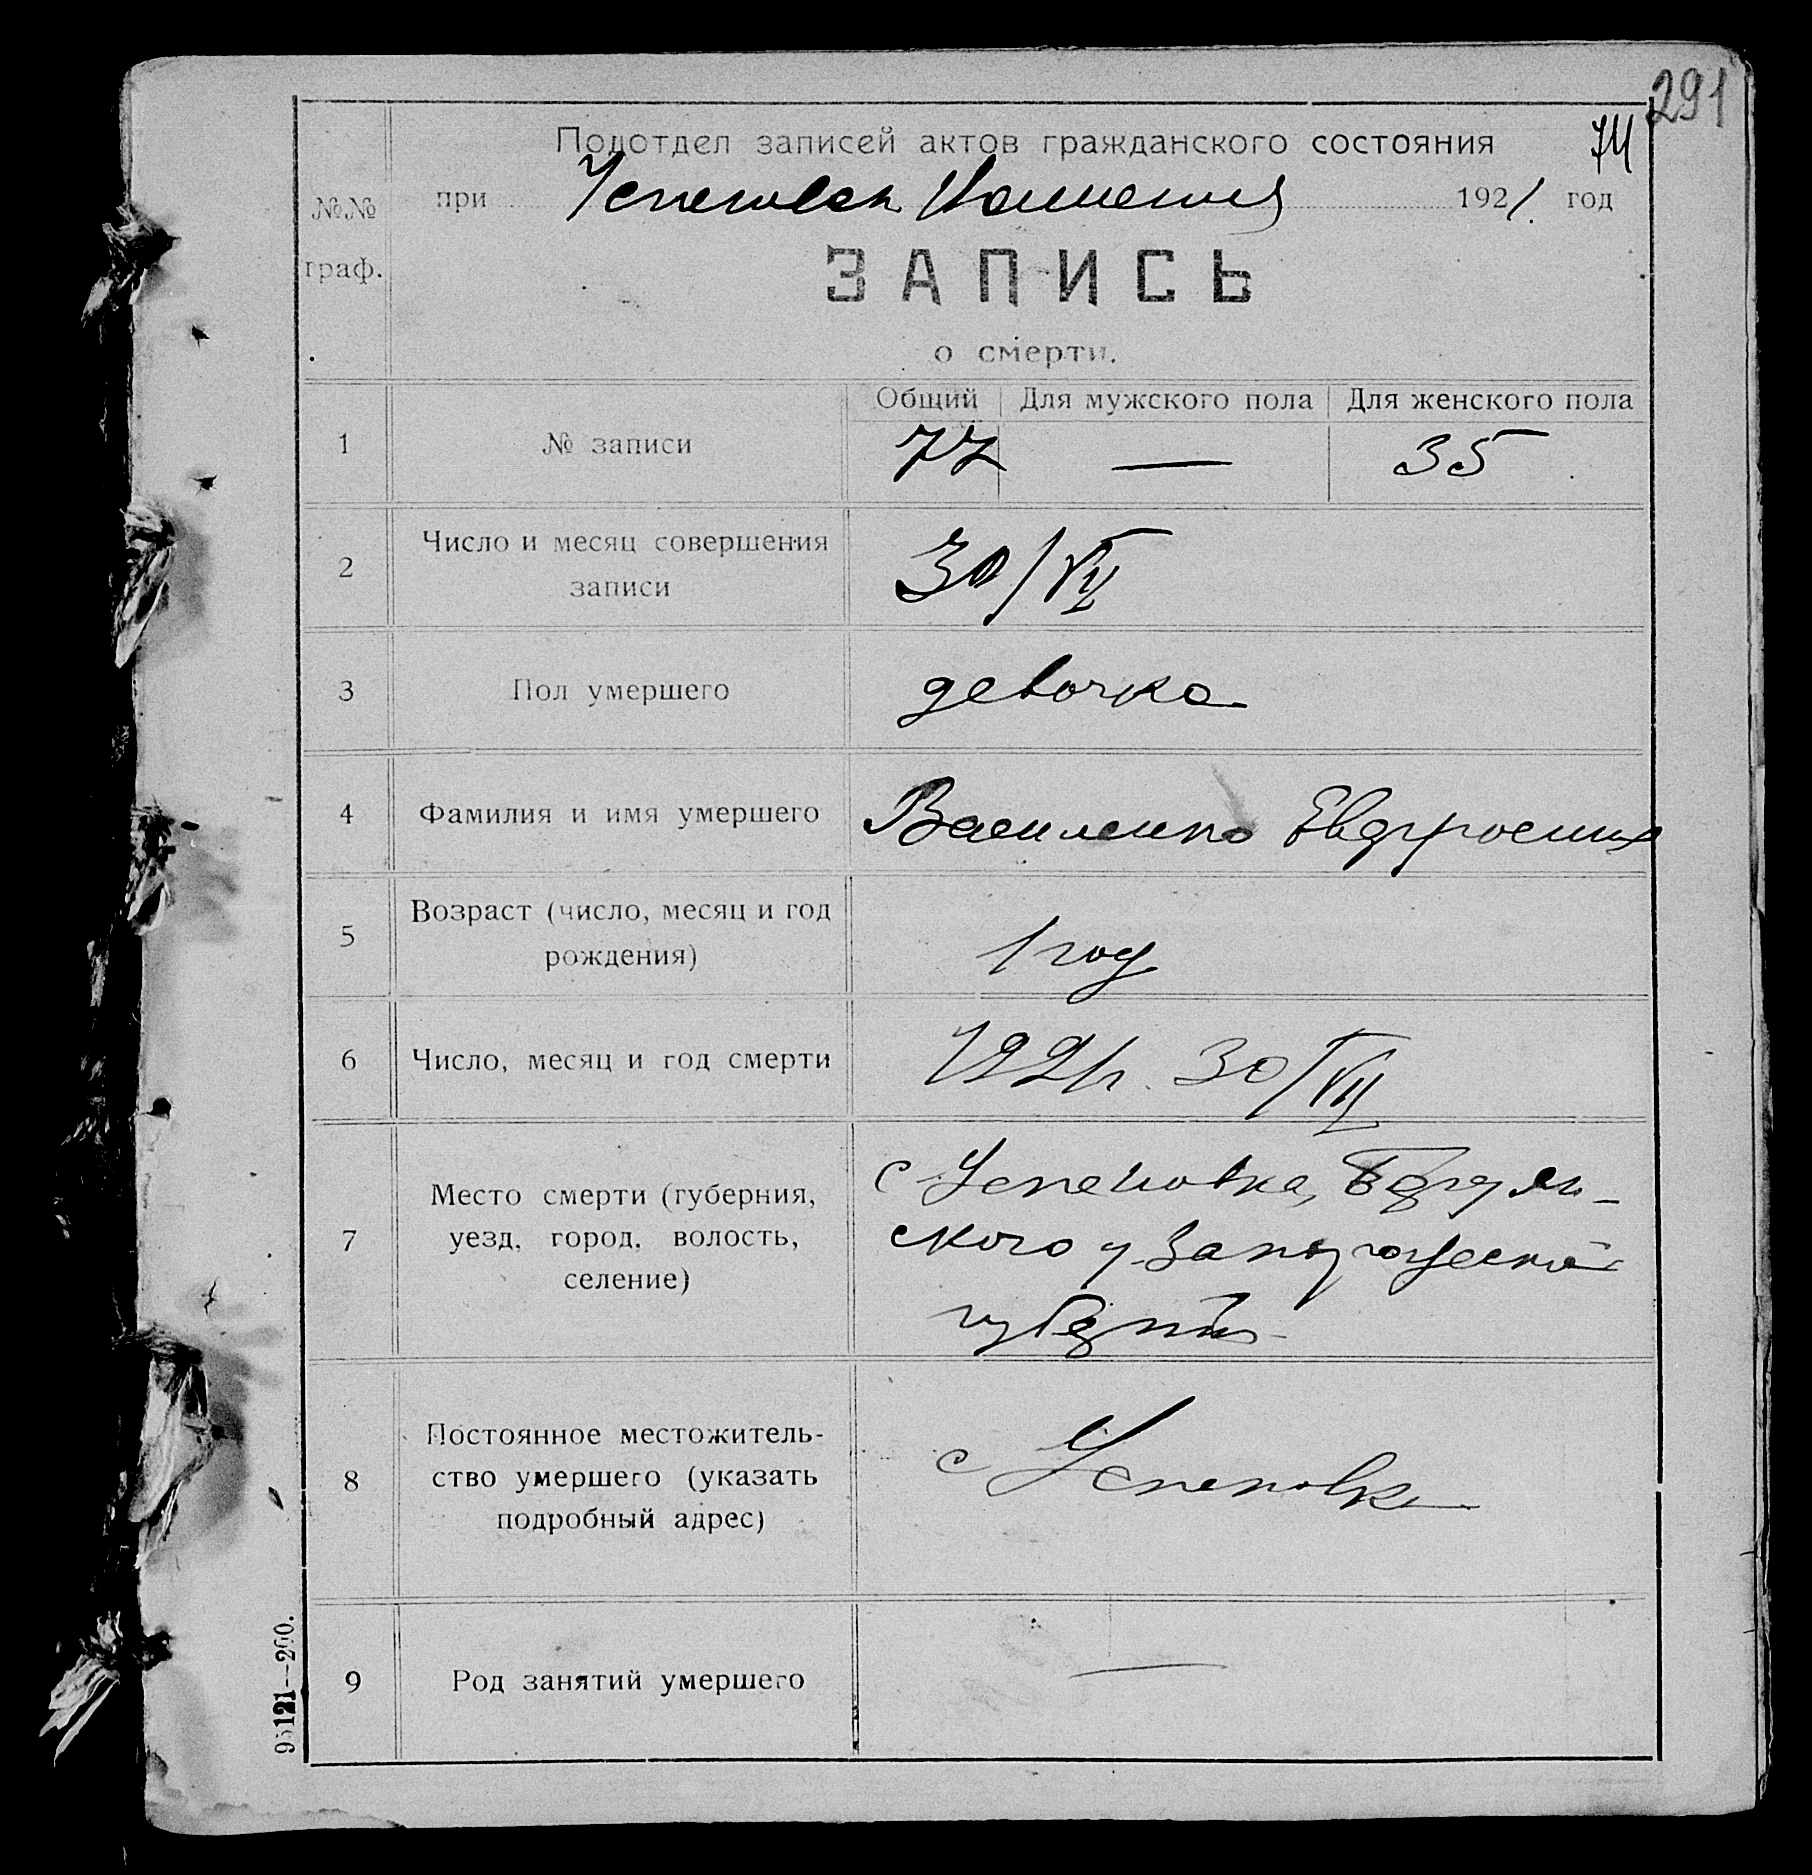 291
Подотдел записей актов гражданского состояния 74
№№ граф.
при 1921. год
ЗАПИСЬ
о смерти.
Общий Для мужского пола Для женского пола
1 № записи 77 — 35
2 Число и месяц совершения
записи
30/VII
3 Пол умершего девочка
4 Фамилия и имя умершего Василенко Евдросиния
5 Возраст (число, месяц и год
рождения)
1 год
6 Число, месяц и год смерти 1921г. 30/VII
7 Место смерти (губерния,
уезд, город, волость,
селение)
с Успеновка, Бердян-
ского у.
губернии
8 Постоянное местожитель-
ство умершего (указать
подробный адрес)
с Успеновка
9 Род занятий умершего —